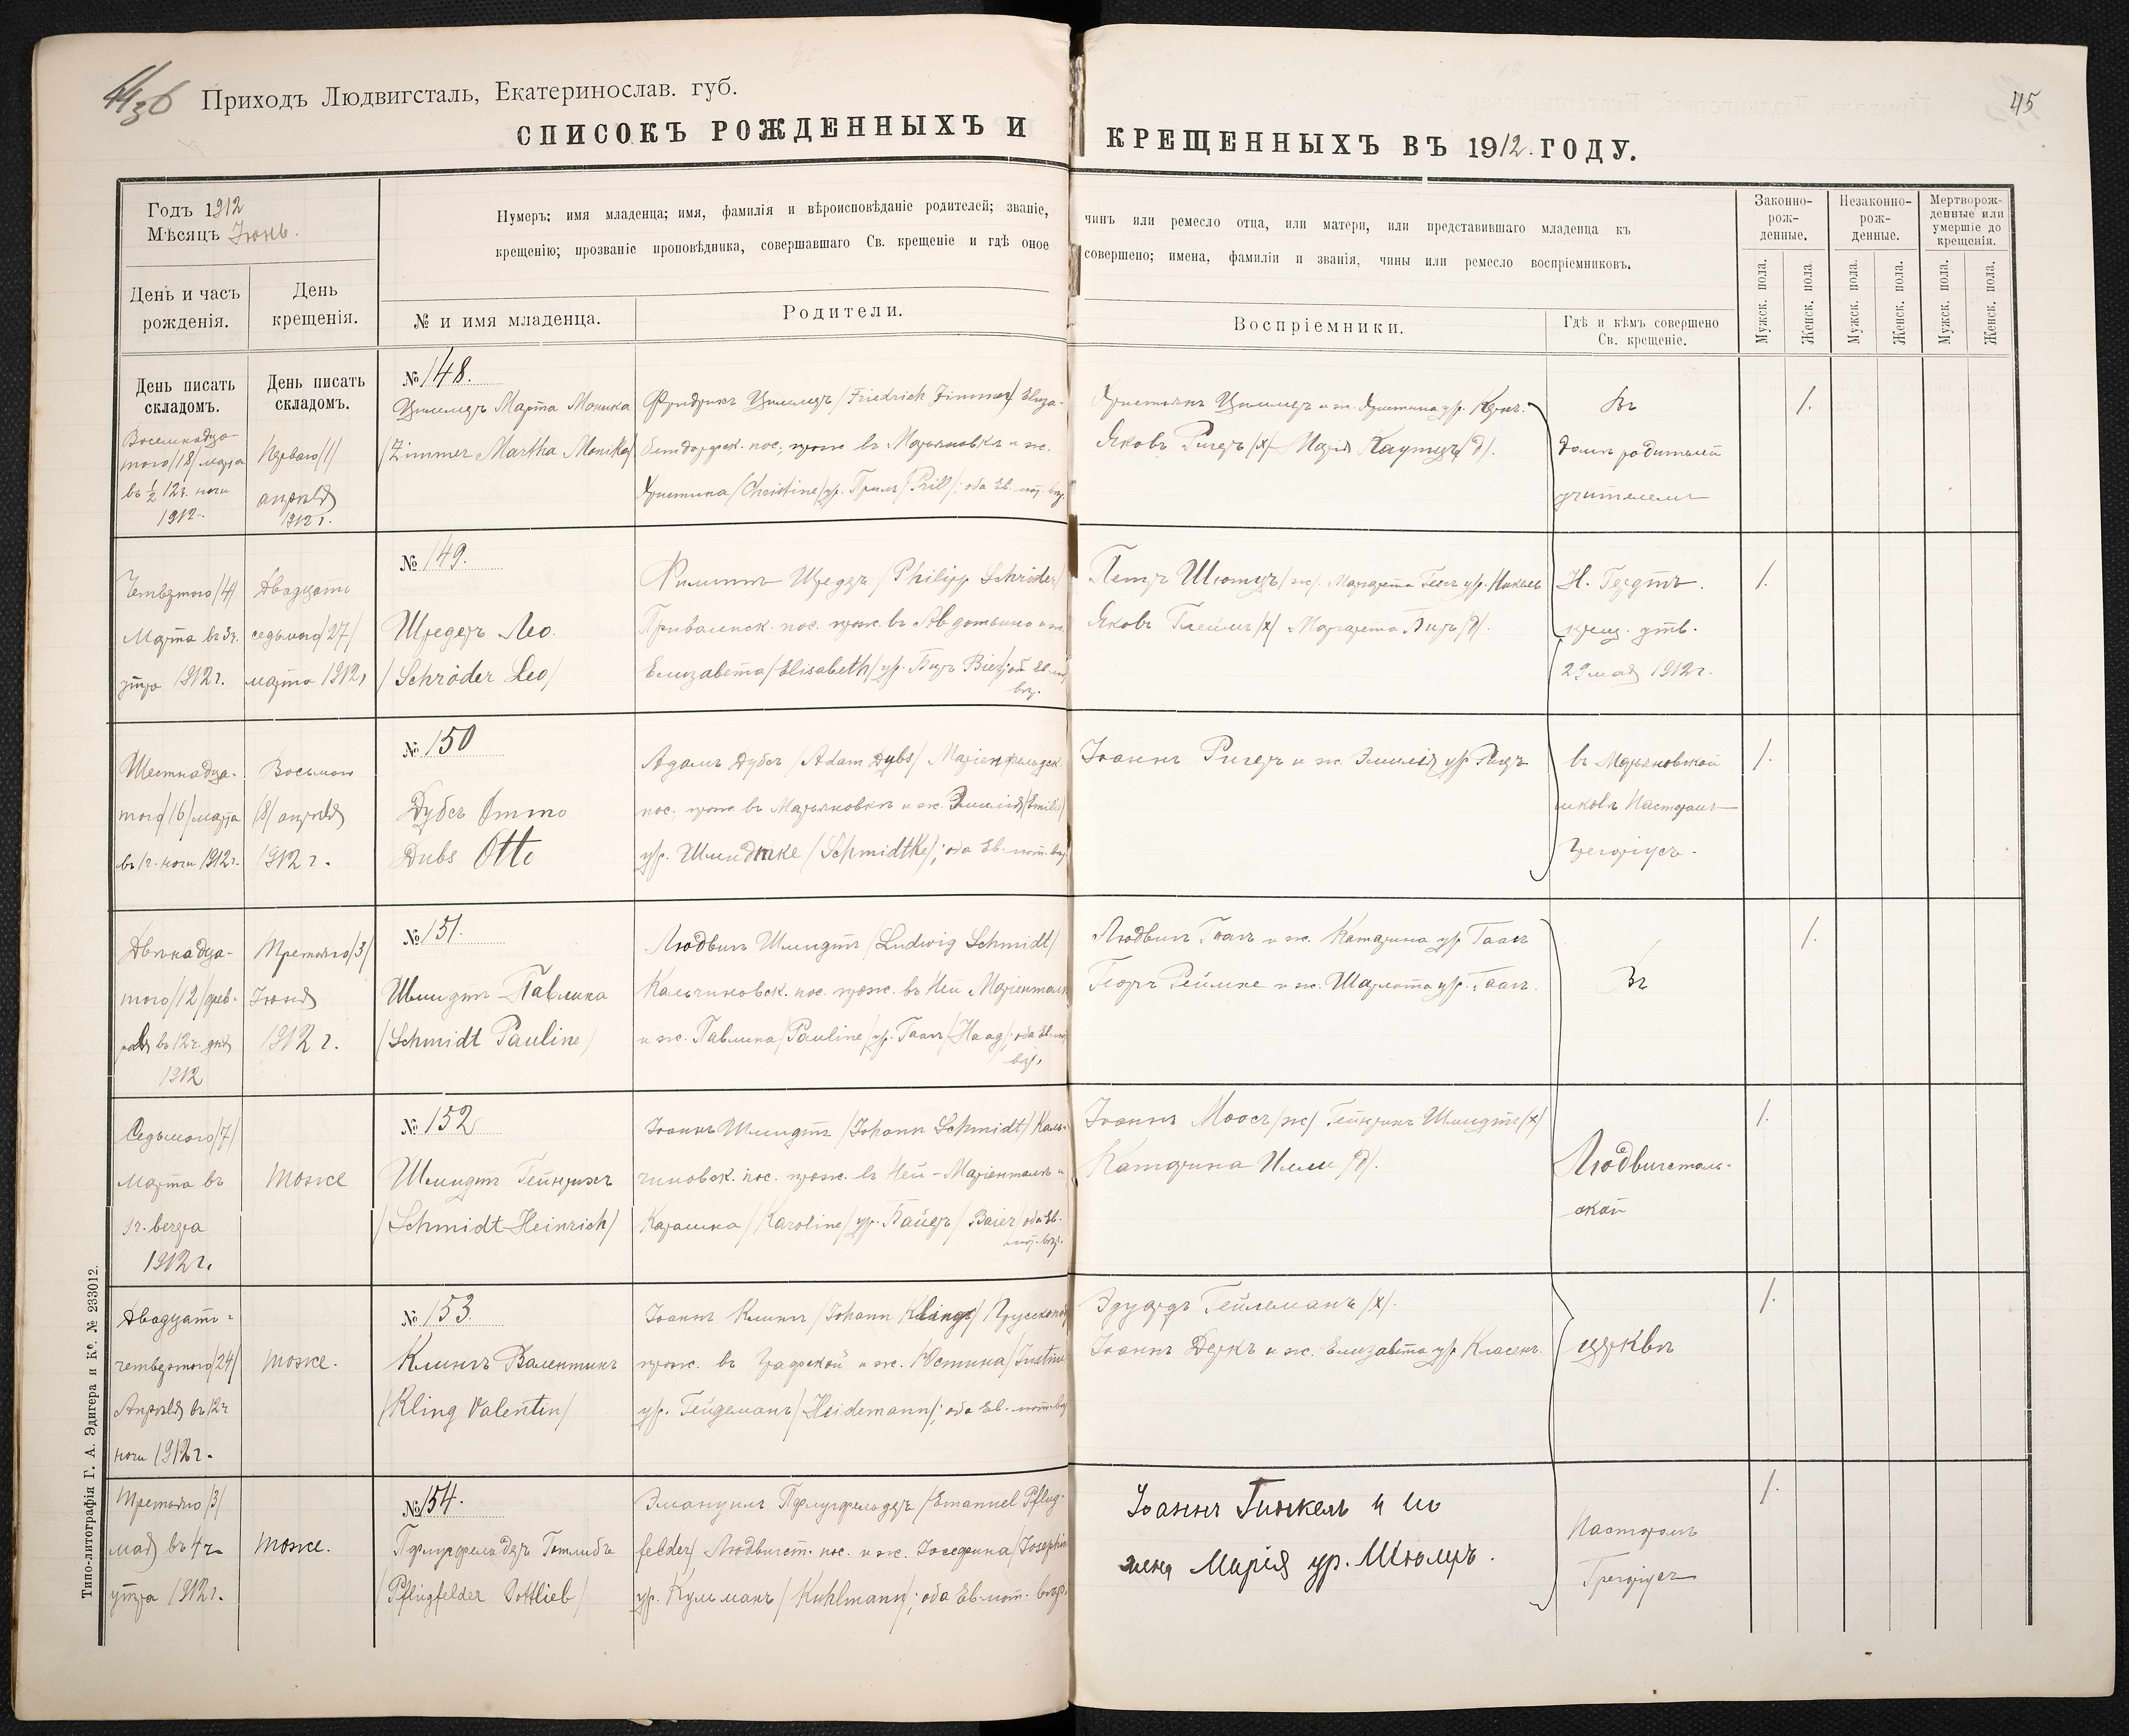 Приходъ Людвигсталь, Екатеринослав. губ.
45
СПИСОКЪ РОЖДЕННЫХЪ И КРЕЩЕННЫХЪ ВЪ 1912 ГОДУ.
Годъ 1912
Мѣсяцъ Іюнь.
Нумеръ; имя младенца; имя, фамилія и вѣроисповѣданіе родителей; званіе, чинъ или ремесло отца, или матери, или представившаго младенца къ
крещенію; прозваніе проповѣдника, совершавшаго Св. крещеніе и гдѣ оное совершено; имена, фамиліи и званія, чины или ремесло воспріемниковъ.
Законно-
рож-
денные.
Незаконно-
рож-
денные.
Мертворож-
денные или
умершіе до
крещенія.
День и часъ
рожденія.
День
крещенія.
№ и имя младенца.
Родители.
Воспріемники.
Гдѣ и кѣмъ совершено
Св. крещеніе.
Мужск. пола.
Женск. пола
Мужск. пола.
Женск. пола.
Мужск. пола.
Женск. пола.
День писать
складомъ.
День писать
складомъ.
Восемнадца-
того/18/ марта
въ ½ 12ч. ночи
1912.
Перваго/1/
апрѣля
1912 г.
№ 148.
Циммеръ Марта Моника
/Zimmer Martha Monika/
Фридрихъ Циммеръ /Friedrich Zimmer/ Елиза-
бетдорфск. пос., прож. въ Марьяновкѣ и ж.
Христина /Christine/ ур. Прилъ /Prill/; оба Ев.-лют. вѣр.
Христіанъ Циммеръ и ж. Христина ур.
Яковъ Ригеръ /х/ Марія Каутцъ /д/.
Въ
домѣ родителей
учителемъ
1.
Четвертого/4/
Марта въ 3ч.
утра 1912 г.
Двадцать
седьмого/27/
марта 1912 г
№ 149.
Шредеръ Лео.
/Schröder Leo/
Филиппъ Шредеръ /Philipp Schröder/
пос. прож. въ Авдотьино и ж.
Елизавета /Elisabeth/ ур. Биръ Bier/; об. Ев.-лют
вѣр.
Петръ Шютцъ /ж/. Маргарета ур. Никель
Яковъ /х/ Маргарета Биръ /д/.
Н. Гердтъ.
крещ. утв.
29 мая 1912 г.
1.
Шестнадца-
того/16/ марта
въ 1ч. ночи 1912 г.
Восьмого
/8/ апрѣля
1912 г.
№ 150
Дубсъ Отто
Dubs Otto
Адамъ Дубсъ /Adam Dubs/ Маріенфельдск.
пос. прож. въ Марьяновкѣ и ж. Эмилія /Emilie/
ур. Шмидтке /Schmidtke/; оба Ев.-лют. вѣр.
Іоаннъ Ригеръ и ж. Эмилія ур
въ Марьяновской
школѣ Пасторомъ
Грегоріусъ.
1.
Двѣнадца-
того/12/ фев-
раля въ 12ч. дня
1912
Третьяго/3/
Іюня
1912 г.
№ 151.
Шмидтъ Павлина
/Schmidt Pauline/
Людвигъ Шмидтъ /Ludwig Schmidt/
Кальчиновск. пос. прож. въ Ней Маріенталѣ
и ж. Павлина /Pauline/ ур. Гаагъ /Haag/; оба Ев.-лют
вѣр.
Людвигъ Гаагъ и ж. Катарина ур. Гаагъ
Георгъ Реймхе и ж. Шарлота ур. Гаагъ.
Въ
1.
Седьмого/7/
Марта въ
9ч. вечера
1912 г.
тоже
№ 152
Шмидтъ Гейнрихъ
/Schmidt Heinrich/
Іоаннъ Шмидтъ /Johann Schmidt/ Каль-
чиновск. пос. прож. въ Ней-Маріенталѣ и
Каролина /Karoline/ ур. Байеръ /Baier/ оба Ев.
лют. вѣр.
Іоаннъ Моосъ /ж/ Гейнрихъ Шмидтъ /х/
Катарина /д/.
Людвигсталь-
ской
1.
Двадцать-
четвертого/24/
Апрѣля въ 12ч
ночи 1912 г.
тоже.
№ 153.
Клингъ Валентинъ
/Kling Valentin/
Іоаннъ Клингъ /Johann Kling/
прож. въ Графской и ж. Юстина /Justine
ур. Гейдеманъ /Heidemann/; оба Ев.-лют. вѣр
Эдуардъ Гейлеманъ /х/.
Іоаннъ Деркъ и ж. Елизавета ур Класенъ.
церквѣ
1.
Третьяго/3/
мая въ 4ч
утра 1912 г.
тоже.
№ 154.
Пфлугфельдеръ Готлибъ
/Pflugfelder Gottlieb/
Эмануилъ Пфлугфельдеръ /Emanuel Pflug-
felder/ Людвигст. пос. и ж. Іосефина /Josephin
ур. Кульманъ /Kuhlmann/; оба Ев.-лют. вѣр.
Іоаннъ Гинкель и его
жена Марія ур. Шюлцъ.
Пасторомъ
Грегоріусъ
1.
Типо-литографія Г. А. Эдигера и Кº. № 233012.